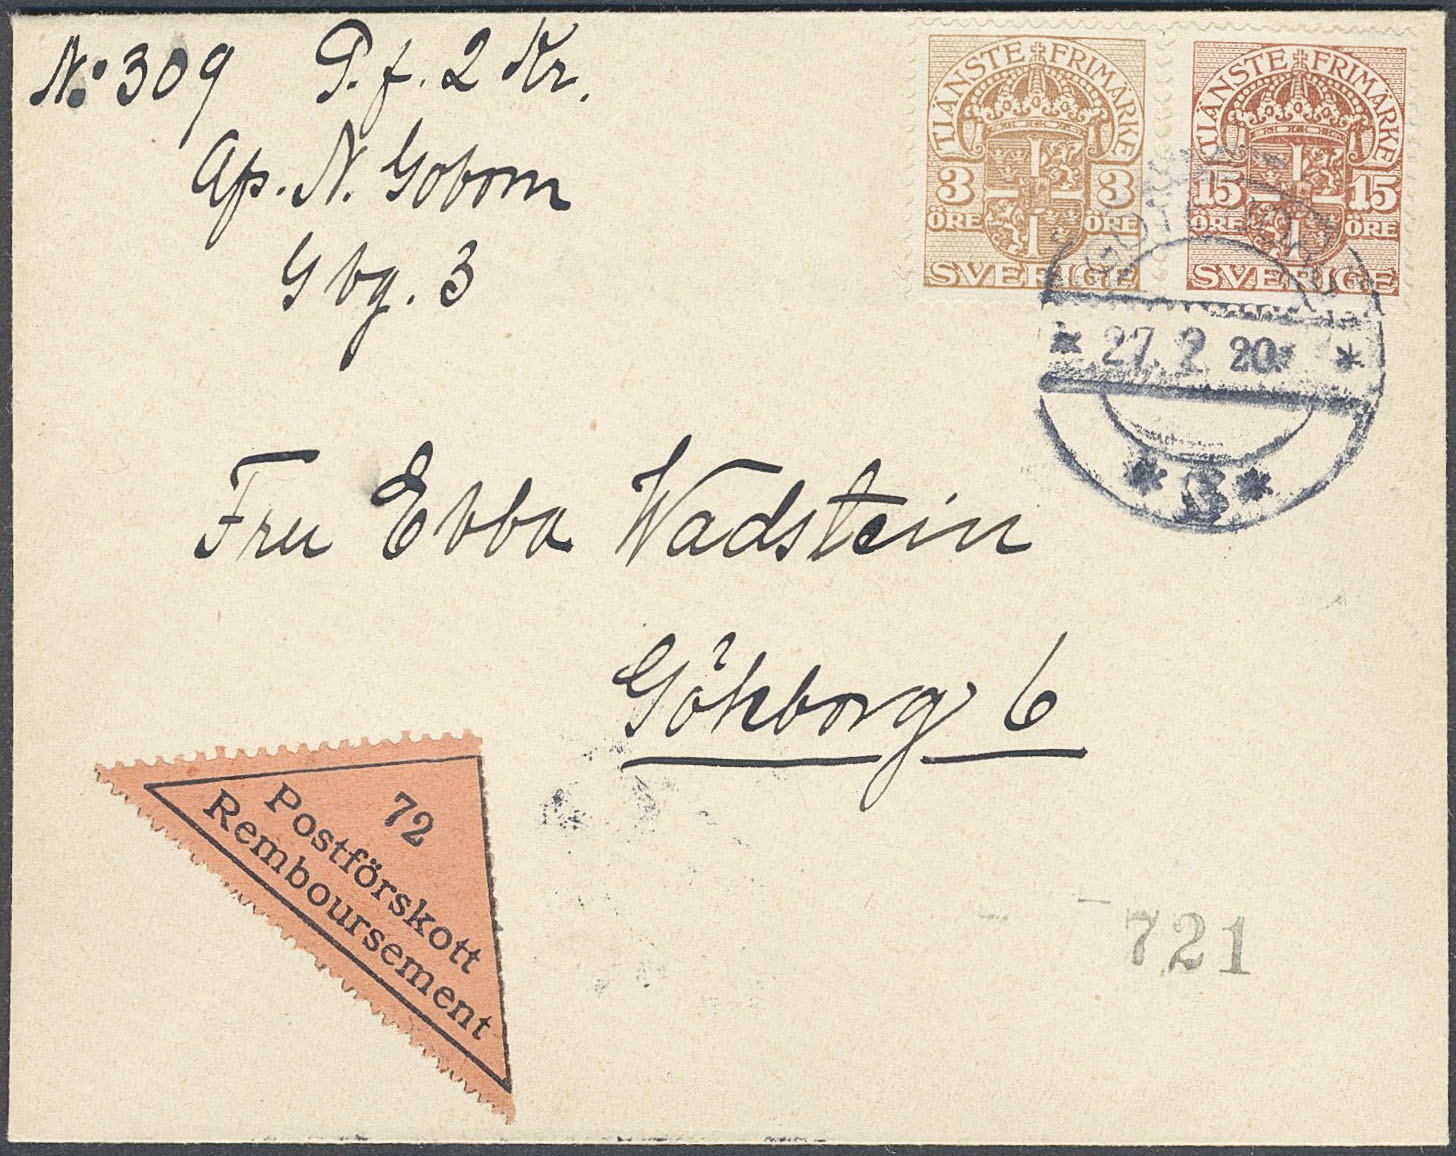 No: 309 P.f. 2 Kr.
Ap. N. Gobom
Gbg. 3
TJÄNSTE FRIMÄRKE
3 3
ÖRE ÖRE
SVERIGE
TJÄNSTE FRIMÄRKE
15 15
ÖRE ÖRE
SVERIGE
GÖTEBORG
* 27. 2 20 *
Fru Ebba Wadstein
Göteborg 6
72
Postförskott
Remboursement
721